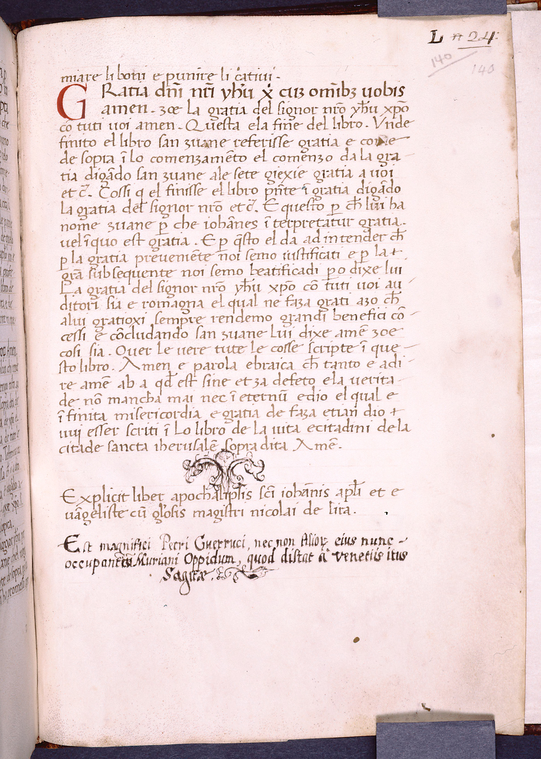 L nº 24:
140
143
miare li boni e punire li cativi.
GRatia dn̄i nr̄i yħu x̄ cuʒ om̄ibʒ uobis
amen. ʒoe la gratia del signor nr̄o yħu xp̄o
cō tuti uoi amen. Questa ela fine del libro. Unde
finito el libro san ʒuane referisse gratia e come
de sopra ī lo comenzamēto el comenzo da la gra
tia digādo san ʒuane ale sete giexie gratia a uoi
et c̄. Cossi q̄ el finisse el libro pn̄te ī gratia digādo
la gratia del signor nr̄o et c̄. E questo p cħ lui ha
nome ʒuane p che iohānes ī terpretatur gratia.
uel ī quo est gratia. E p q̄sto el da ad intender cħ
p la gratia preveniēte noi semo iustificati e p la
gr̄a subsequente noi semo beatificadi p o dixe lui
La gratia del signor nr̄o yħu xp̄o cō tuti uoi au
ditori sia e romagna el qual ne faza grati azo cħ
alui gratioxi sempre rendemo grandi benefici cō
cessi e cōcludando san ʒuane lui dixe amē ʒoe
cosi sia. Over le vere tute le cosse scripte ī que
sto libro. Amen e parola ebraica cħ tanto e a di
re amē ab a qd̄ est sine et ʒa defeto e la verita
de nō mancha mai nec ī eternū e dio el qual e
ī finita misericordia e gratia de faza etiam dio
nui esser scriti ī lo libro de la uita e citadini de la
citade sancta iherusalē sopra dita Amē.
Explicit liber apochalipsis sc̄i iohānis ap̄li et e
uāgeliste cū glosis magistri nicolai de lira.
Est magnifici Petri Guerruci, nec non Alior. eius nunc
occupantis Muriani Oppidum, quod distat a Venetiis ictus
Sagitæ.